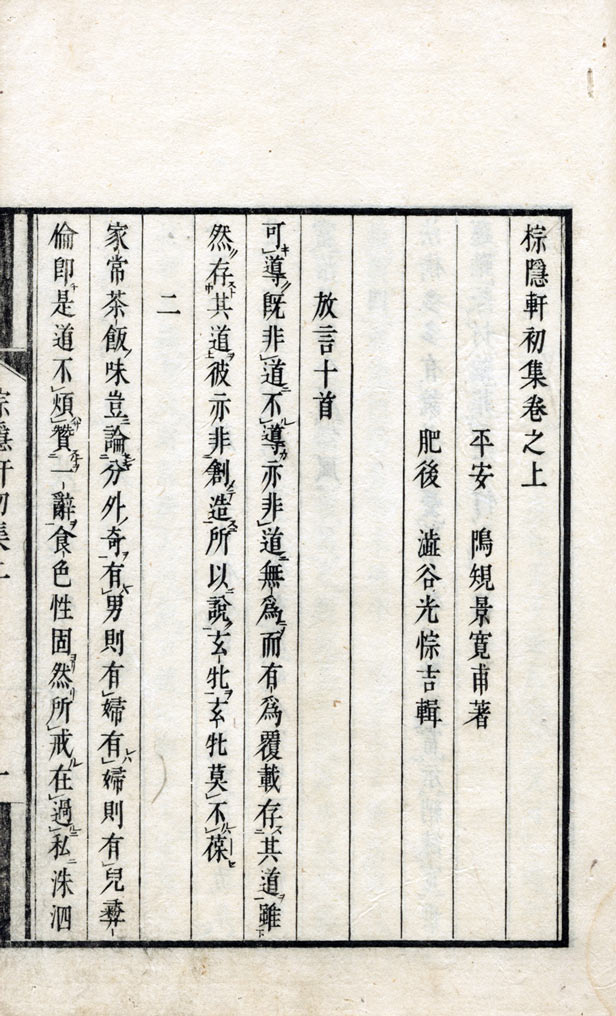 棕隱軒初集卷之上
平安 隝規景寛甫著
肥後 澁谷光悰吉輯
放言十首
可導既非道不導亦非道無爲而有爲覆載存其道雖
然存其道彼亦非創造所以說玄牝玄牝莫不葆
二
家常茶飯味豈論分外奇有男則有婦有婦則有兒彝
倫卽是道不煩贊一辭食色性固然所戒在過私洙泗
棕隱軒初集上
一